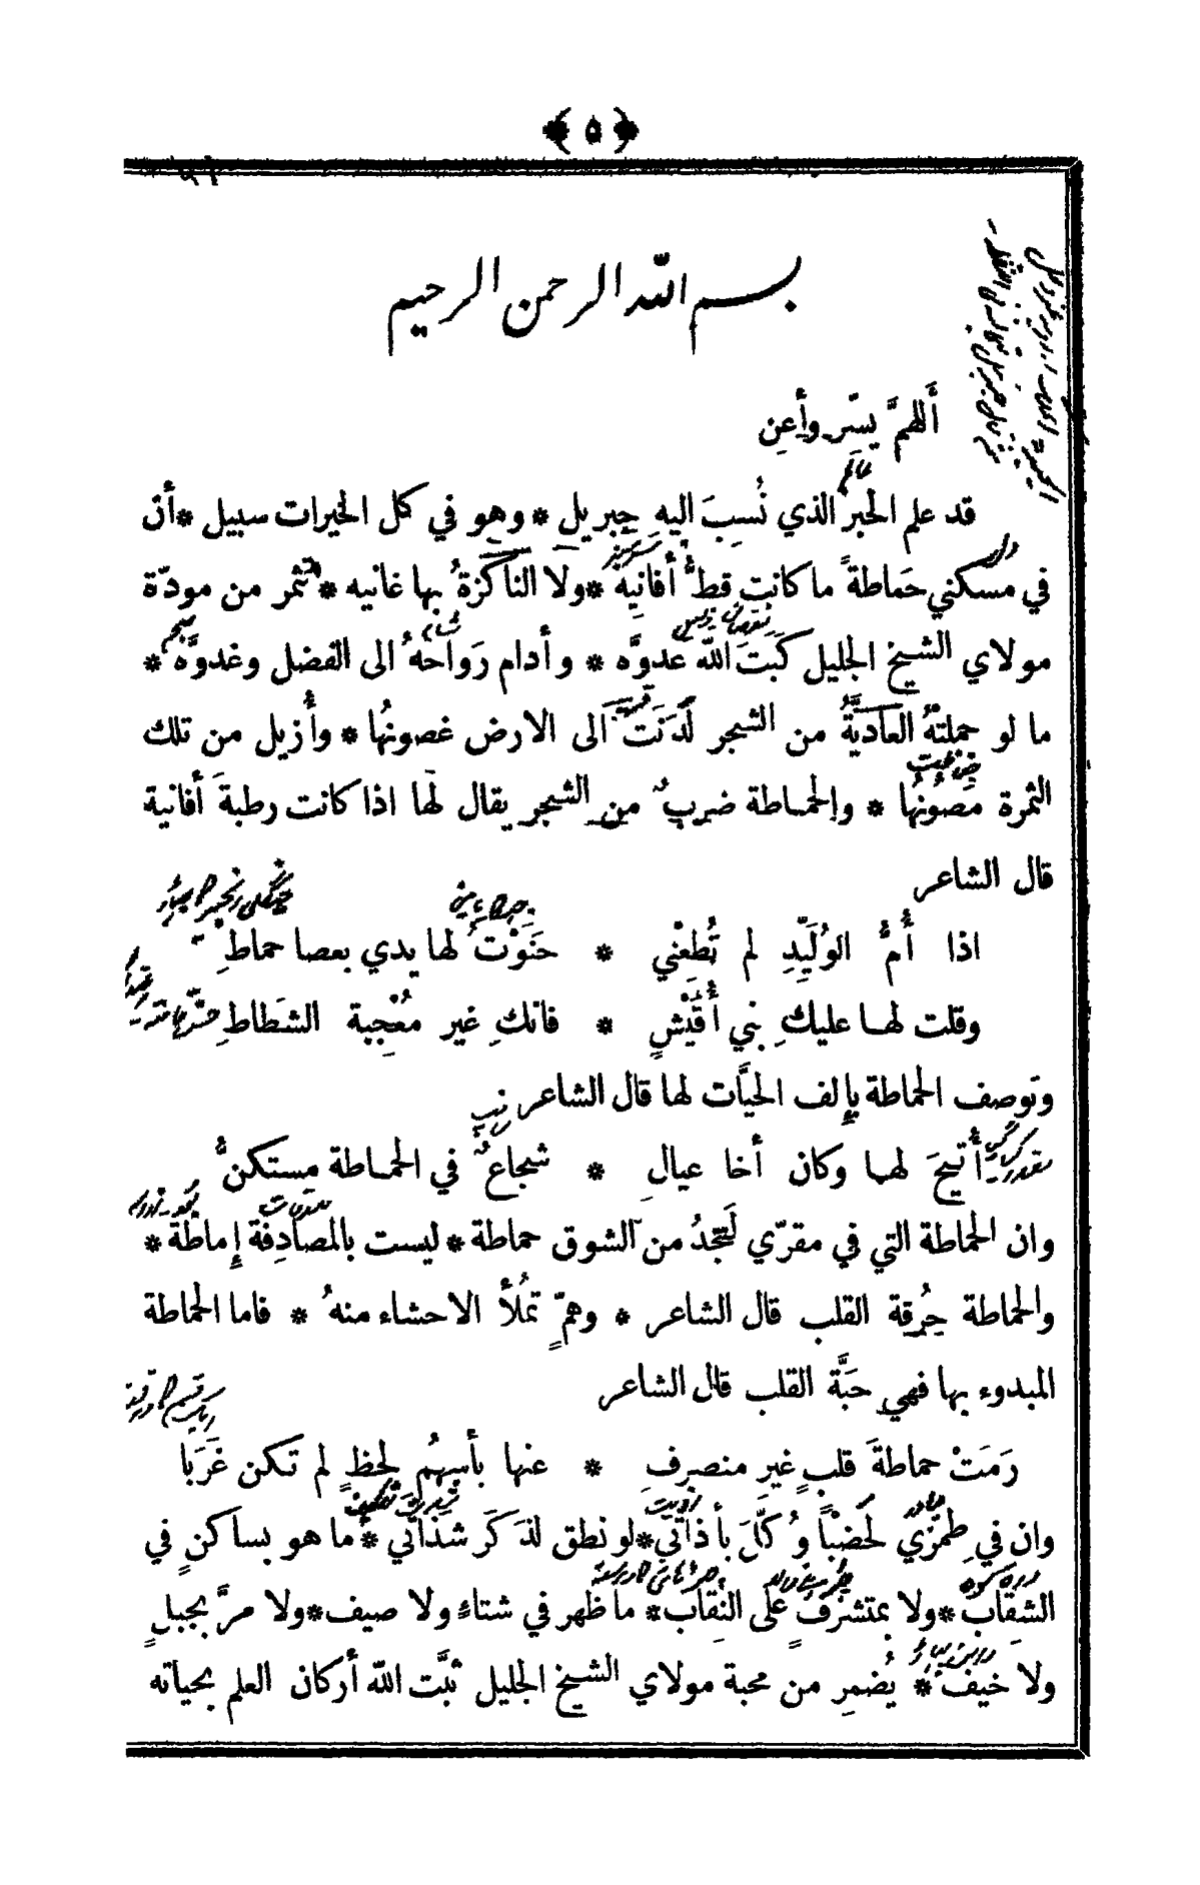 ﴿ ٥ ﴾
بسم الله الرحمن الرحيم
أَللهمَّ يسِّر وأعِن
قد علم الحَبر الذي نُسِبَ اليهِ جِبريل * وهو في كل الخيرات سبيل * أن
في مسكني حَماطةً ما كانت قطُّ أفانِيةً * ولا الناكزةُ بها غانيه * تثمر من مودّة
مولاي الشيخ الجليل كَبَتَ الله عدوَّه * وأدام رَواحهُ الى الفضل وغدوَّه *
ما لو حملتْهُ العاديَّةُ من الشجر لَدَنَتْ الى الارض غصونُها * وأُزيل من تلك
الثمرة مَصُونُها * والحماطة ضربٌ من الشجر يقال لها اذا كانت رطبةَ أفانية
قال الشاعر
اذا أُمُّ الوُلَيِّدِ لم تُطِعْني * حَنَوْتُ لها يدي بعصا حماطِ
وقلت لها عليكِ بني أُقَيْشٍ * فانكِ غير مُعْجِبة الشَطاطِ
وتوصف الحماطة بإِلف الحيَّات لها قال الشاعر
أُتيحَ لها وكان أخا عيالِ * شجاعٌ في الحماطة مستكنُّ
وان الحماطة التي في مقرّي لَتجدُ من الشوق حماطة * ليست بالمصادِفة إِماطة *
والحماطة حِرُقة القلب قال الشاعر * وهمٍّ تُملأُ الاحشاء منهُ * فاما الحماطة
المبدوء بها فهي حَبَّة القلب قال الشاعر
رَمَتْ حماطةَ قلبٍ غيرِ منصرِفٍ * عنها بأسهُم لحظٍ لم تكن غَرَبَا
وان في طِمرّي لَحَضْبًا وُكّلَ بأذاتي * لو نطق لذَكَرَ شَذاتي * ما هو بساكنٍ في
الشِقاب * ولا بمتشرّفٍ على النِقاب * ما ظهر في شتاءٍ ولا صيف * ولا مرَّ بجبلٍ
ولا خيف * يُضمِر من محبة مولاي الشيخ الجليل ثبَّت الله أركان العلم بحياته